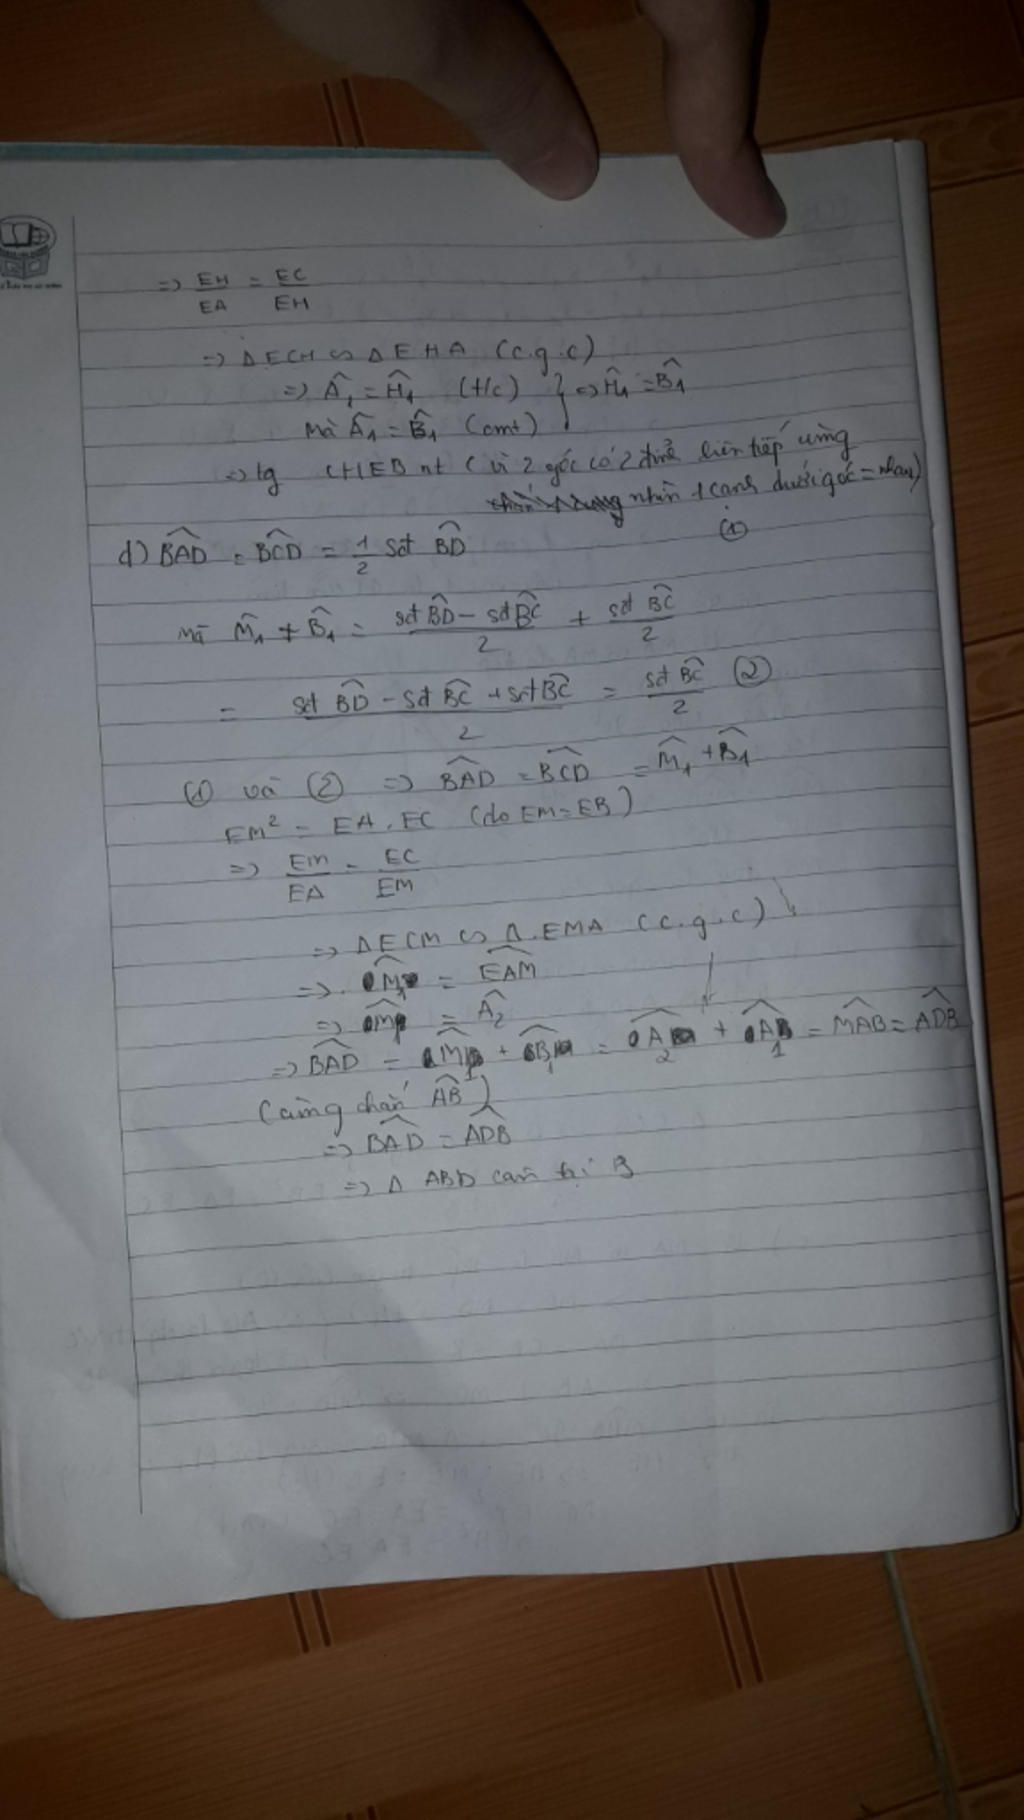 => EH/EA = EC/EH
=> Δ ECH ∽ Δ EHA (c.g.c)
=> Â₁ = Ĥ₁ (t/c) } => Ĥ₁ = B̂₁
Mà Â₁ = B̂₁ (cmt)
=> tg CHEB nt ( vì 2 góc có 2 đỉnh liên tiếp cùng
nhìn 1 cạnh dưới góc = nhau)
d) BAD̂ = BCD̂ = 1/2 sđ BD̂ (1)
Mà M̂₁ + B̂₁ = (sđ BD̂ - sđ BĈ)/2 + sđ BĈ/2
= (sđ BD̂ - sđ BĈ + sđ BĈ)/2 = sđ BĈ/2 (2)
(1) và (2) => BAD̂ = BCD̂ = M̂₁ + B̂₁
EM² = EA . EC (do EM = EB)
=> EM/EA = EC/EM
=> Δ ECM ∽ Δ EMA (c.g.c)
=> M̂₁ = EAM̂
=> M̂ = Â₂
=> BAD̂ = M̂₁ + B̂₁ = Â₂ + Â₁ = MAB̂ = ADB̂
(cùng chắn AB̂)
=> BAD̂ = ADB̂
=> Δ ABD cân tại B